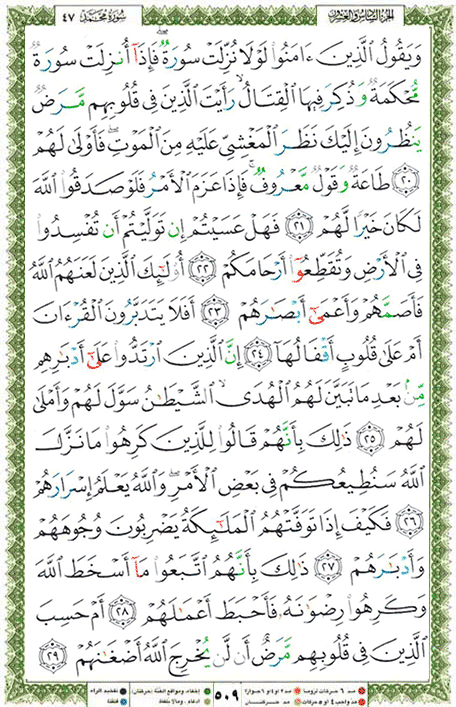 سورة محمد ٤٧ الجزء السادس والعشرون
وَيَقُولُ ٱلَّذِينَ ءَامَنُوا۟ لَوْلَا نُزِّلَتْ سُورَةٌ ۖ فَإِذَآ أُنزِلَتْ سُورَةٌ
مُّحْكَمَةٌ وَذُكِرَ فِيهَا ٱلْقِتَالُ ۙ رَأَيْتَ ٱلَّذِينَ فِى قُلُوبِهِم مَّرَضٌ
يَنظُرُونَ إِلَيْكَ نَظَرَ ٱلْمَغْشِىِّ عَلَيْهِ مِنَ ٱلْمَوْتِ ۖ فَأَوْلَىٰ لَهُمْ
٢٠ طَاعَةٌ وَقَوْلٌ مَّعْرُوفٌ ۚ فَإِذَا عَزَمَ ٱلْأَمْرُ فَلَوْ صَدَقُوا۟ ٱللَّهَ
لَكَانَ خَيْرًا لَّهُمْ ٢١ فَهَلْ عَسَيْتُمْ إِن تَوَلَّيْتُمْ أَن تُفْسِدُوا۟
فِى ٱلْأَرْضِ وَتُقَطِّعُوٓا۟ أَرْحَامَكُمْ ٢٢ أُو۟لَـٰٓئِكَ ٱلَّذِينَ لَعَنَهُمُ ٱللَّهُ
فَأَصَمَّهُمْ وَأَعْمَىٰٓ أَبْصَـٰرَهُمْ ٢٣ أَفَلَا يَتَدَبَّرُونَ ٱلْقُرْءَانَ
أَمْ عَلَىٰ قُلُوبٍ أَقْفَالُهَآ ٢٤ إِنَّ ٱلَّذِينَ ٱرْتَدُّوا۟ عَلَىٰٓ أَدْبَـٰرِهِم
مِّنۢ بَعْدِ مَا تَبَيَّنَ لَهُمُ ٱلْهُدَى ۙ ٱلشَّيْطَـٰنُ سَوَّلَ لَهُمْ وَأَمْلَىٰ
لَهُمْ ٢٥ ذَٰلِكَ بِأَنَّهُمْ قَالُوا۟ لِلَّذِينَ كَرِهُوا۟ مَا نَزَّلَ
ٱللَّهُ سَنُطِيعُكُمْ فِى بَعْضِ ٱلْأَمْرِ ۖ وَٱللَّهُ يَعْلَمُ إِسْرَارَهُمْ
٢٦ فَكَيْفَ إِذَا تَوَفَّتْهُمُ ٱلْمَلَـٰٓئِكَةُ يَضْرِبُونَ وُجُوهَهُمْ
وَأَدْبَـٰرَهُمْ ٢٧ ذَٰلِكَ بِأَنَّهُمُ ٱتَّبَعُوا۟ مَآ أَسْخَطَ ٱللَّهَ
وَكَرِهُوا۟ رِضْوَٰنَهُۥ فَأَحْبَطَ أَعْمَـٰلَهُمْ ٢٨ أَمْ حَسِبَ
ٱلَّذِينَ فِى قُلُوبِهِم مَّرَضٌ أَن لَّن يُخْرِجَ ٱللَّهُ أَضْغَـٰنَهُمْ ٢٩
٥٠٩